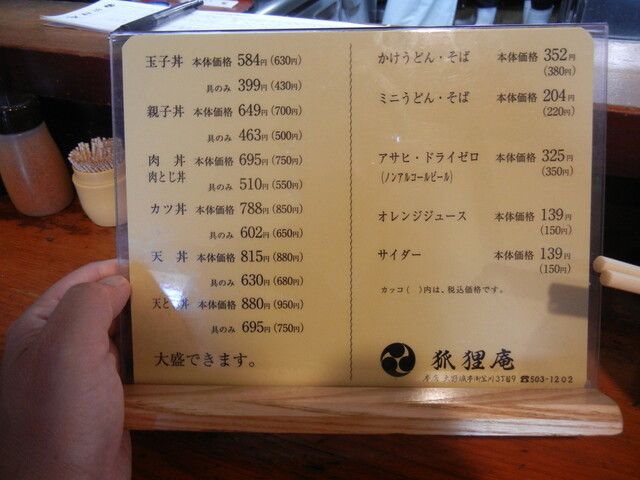 玉子丼 本体価格 584円(630円)
具のみ 399円(430円)
親子丼 本体価格 649円(700円)
具のみ 463円(500円)
肉 丼 本体価格 695円(750円)
肉とじ丼
具のみ 510円(550円)
カツ丼 本体価格 788円(850円)
具のみ 602円(650円)
天 丼 本体価格 815円(880円)
具のみ 630円(680円)
天とじ丼 本体価格 880円(950円)
具のみ 695円(750円)
大盛できます。
かけうどん・そば 本体価格 352円
(380円)
ミニうどん・そば 本体価格 204円
(220円)
アサヒ・ドライゼロ 本体価格 325円
(ノンアルコールビール) (350円)
オレンジジュース 本体価格 139円
(150円)
サイダー 本体価格 139円
(150円)
カッコ( )内は、税込価格です。
狐狸庵
☎503-1202